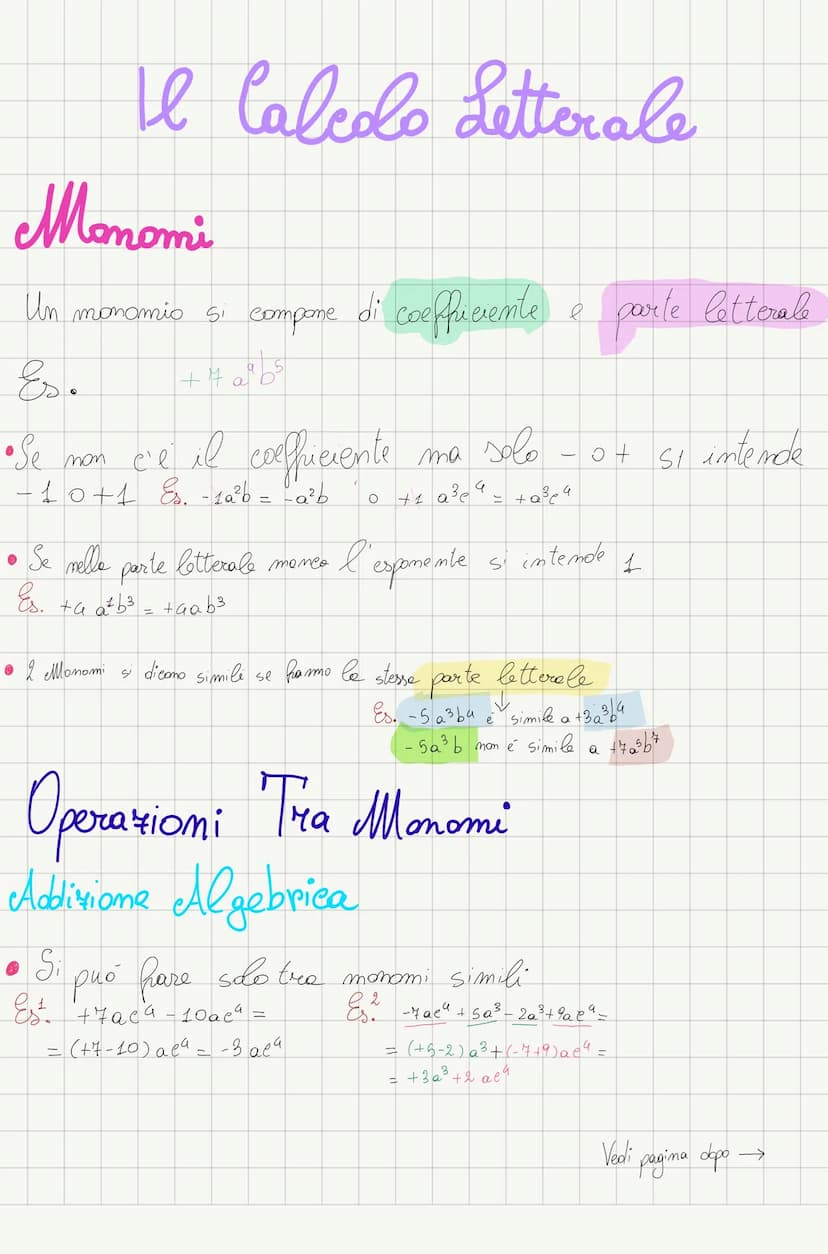 Il Calcolo Letterale
Monomi
Un monomio si compone di coefficiente e parte letterale
Es. +7a⁴b⁵
•Se non c'é il coefficiente ma solo - o + si intende
-1 o +1 Es. -1a²b = -a²b o +1 a³c⁴ = +a³c⁴
• Se nella parte letterale manca l'esponente si intende 1
Es. +4 a¹b³ = +4ab³
• 2 Monomi si dicono simili se hanno la stessa parte letterale
Es. -5a³b⁴ é simile a +3a³b⁴
-5a³b non é simile a +7a⁵b⁷
Operazioni Tra Monomi
Addizione Algebrica
• Si puó fare solo tra monomi simili
Es¹. +7ac⁴ - 10ac⁴ =
= (+7-10)ac⁴ = -3ac⁴
Es.² -7ac⁴ + 5a³ - 2a³ + 9ac⁴ =
= (+5-2)a³ + (-7+9)ac⁴ =
= +3a³ + 2ac⁴
Vedi pagina dopo →